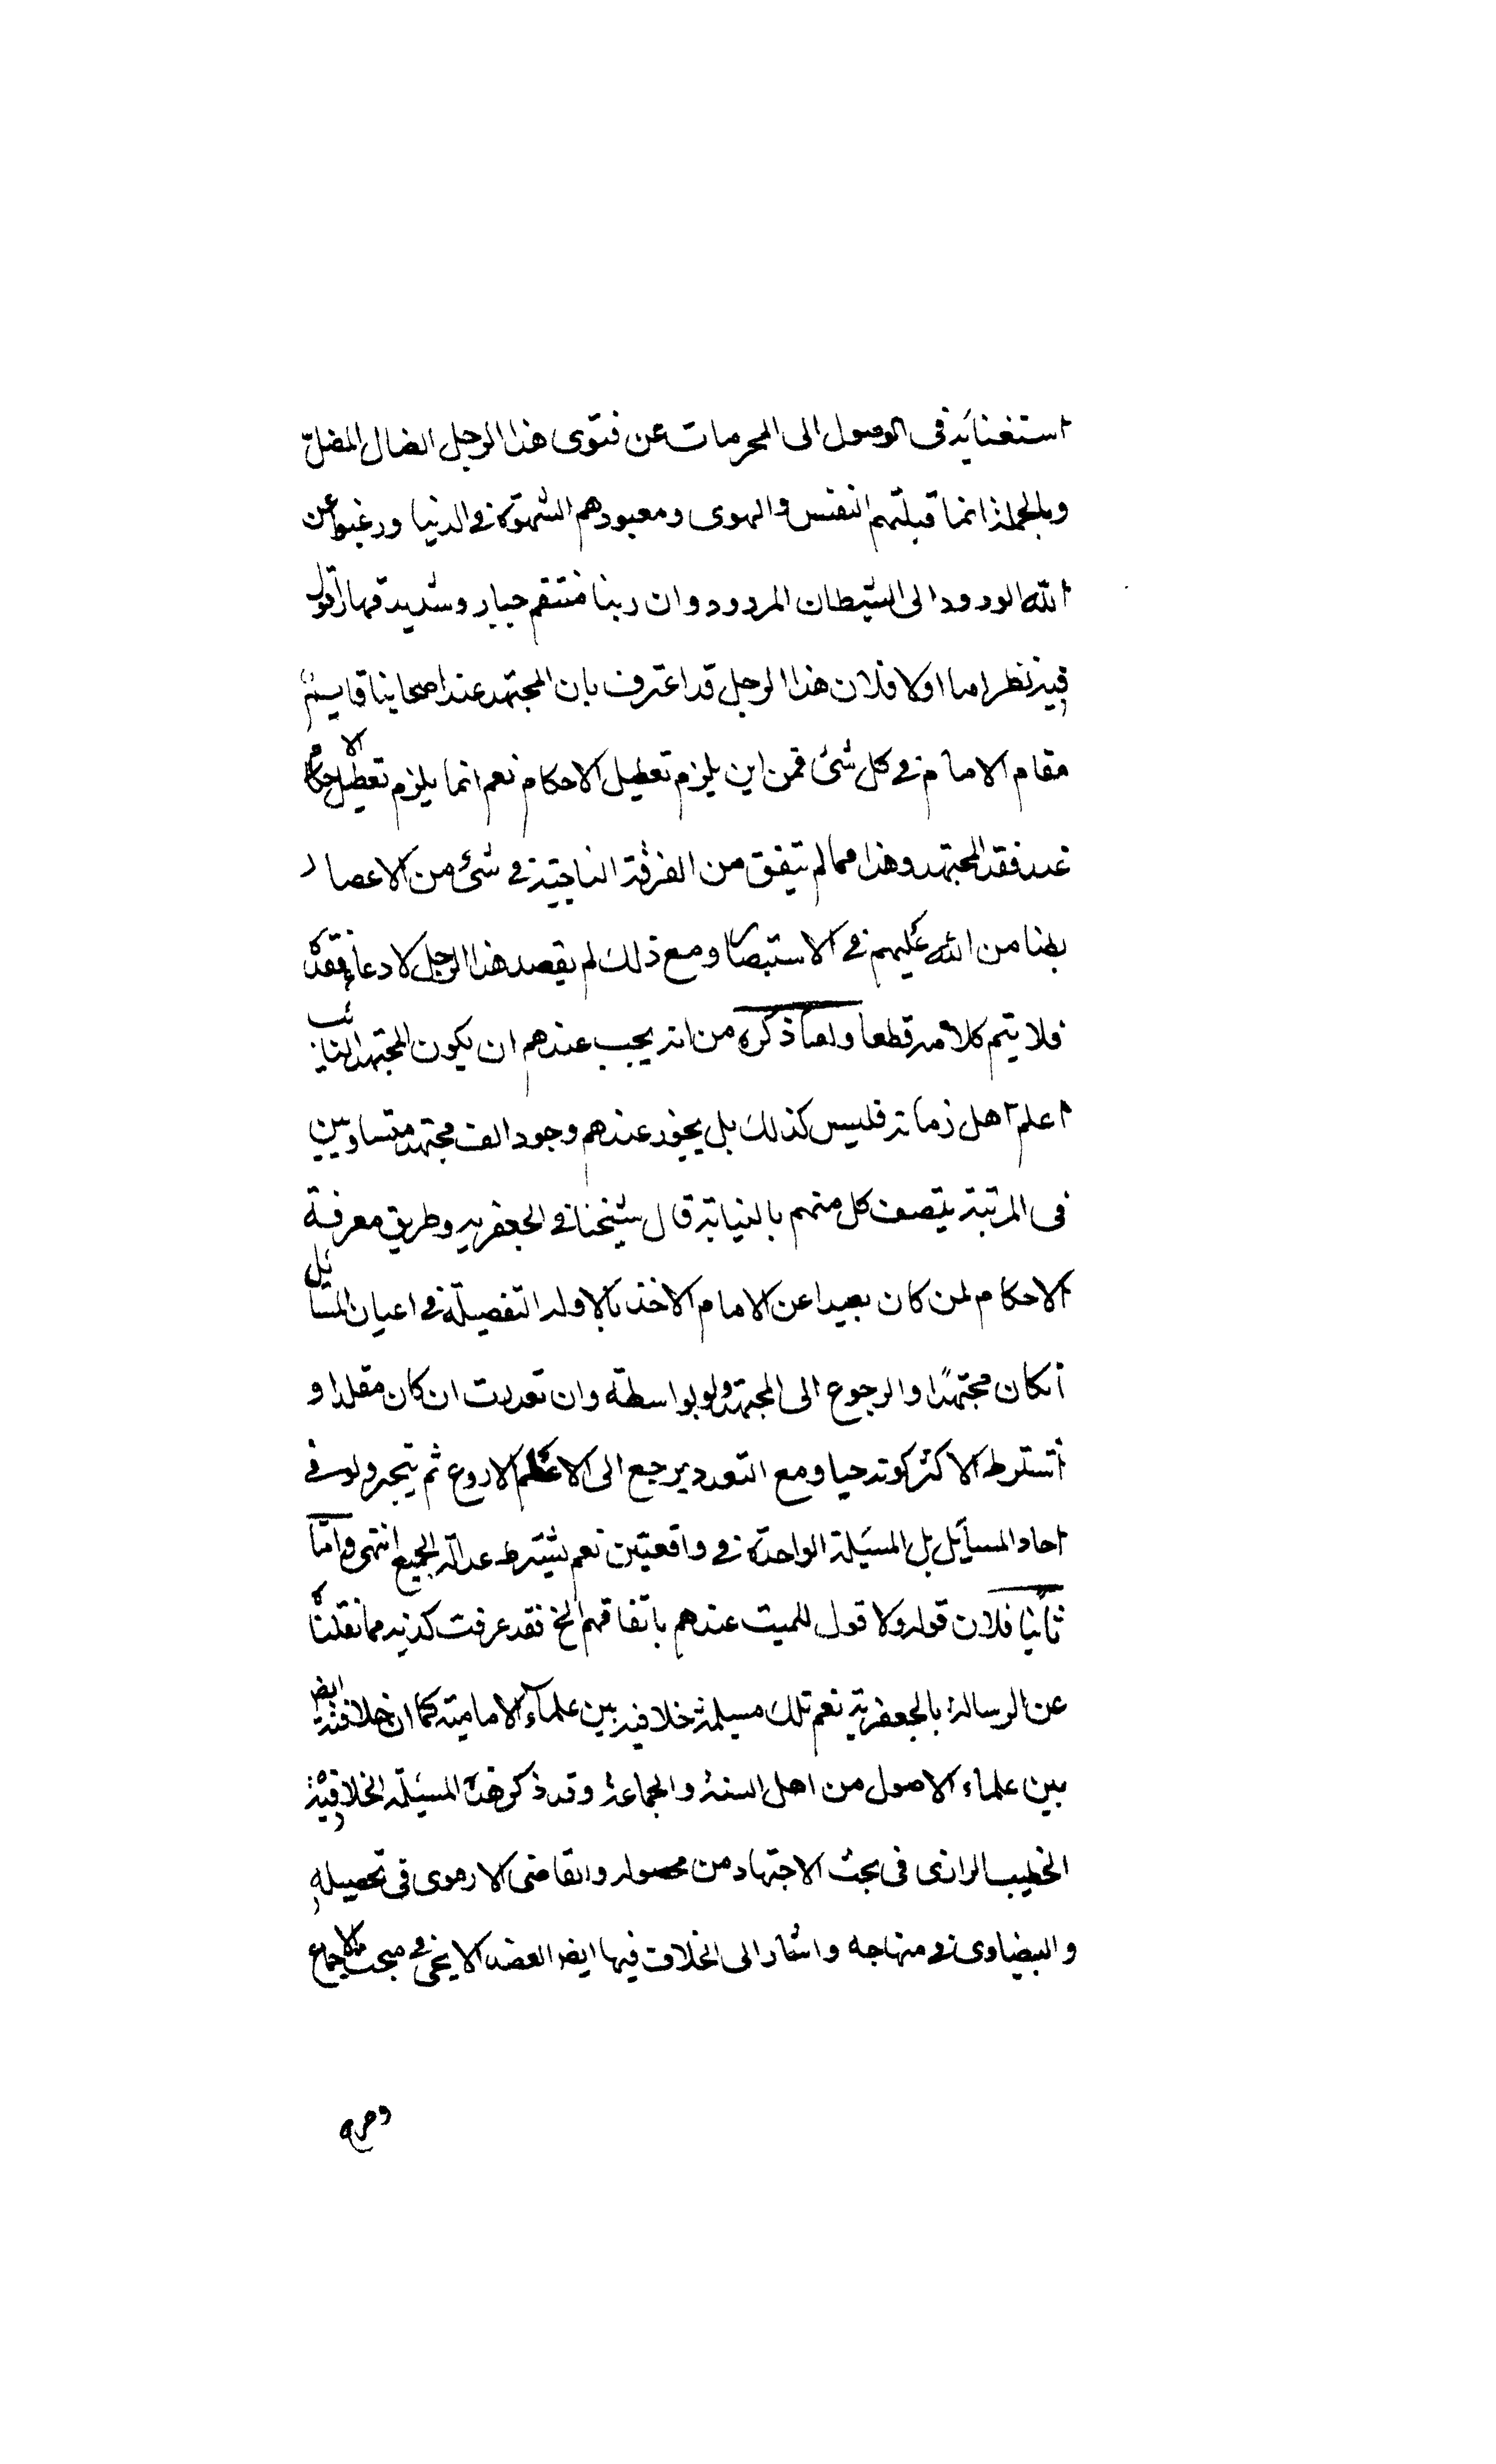 استغنائه فى الوصول الى المحرمات عن فتوى هذا الرجل الضال المضلّ
وبالجملة انما قبلتهم النفس والهوى ومعبودهم الشهوة فى الدنيا ورغبوا عن
الله الودود الى الشيطان المردود وان ربنا منتقم جبار وشديد قهار اقول
فيه نظر اما اولا فلان هذا الرجل قد اعترف بان المجتهد عند اصحابنا قايم
مقام الامام فى كل شئ فمن اين يلزم تعطيل الاحكام نعم انما يلزم تعطيل الاحكام
عند فقد المجتهد وهذا مما لم يتفق من الفرقة الناجية فى شئ من الاعصار
بضا من الله عليهم فى الاستبصار ومع ذلك لم يقصد هذا الرجل لادعا فقده
فلا يتم كلامه قطعا واما ذكره من انه يجب عندهم ان يكون المجتهد النايب
اعلم اهل زمانه فليس كذلك بل يجوز عندهم وجود الف مجتهد متساويين
فى المرتبة يتصف كل منهم بالنيابة قال شيخنا فى الجعفريه وطريق معرفة
الاحكام لمن كان بعيدا عن الامام الاخذ بالادله التفصيلة فى اعيان المسائل
انكان مجتهدًا والرجوع الى المجتهد ولو بواسطة وان تعددت ان كان مقلدا و
اشترط الاكثر كونه حيا ومع التعدد يرجع الى الاعلم الاروع ثم يتخير ولو فى
احاد المسآيل بل المسئلة الواحدة فى واقعتين نعم يشترط عدالة الجميع انتهى واما
ثانيا فلان قوله ولا قول للميت عندهم باتفاقهم الخ فقد عرفت كذبه مما نقلناه
عن الرسالة بالجعفرية نعم تلك مسيلة خلافيه بين علمآء الامامية كما ان خلافية ايض
بين علماء الاصول من اهل السنة والجماعة وقد ذكر هذه المسيئلة الخلافية
الخطيب الرازى فى بحث الاجتهاد من محصوله والقاضى الارموى فى تحصيله
والبيضاوى فى منهاجه واشار الى الخلاف فيها ايض العضد الايجى فى مبحث الاجماع